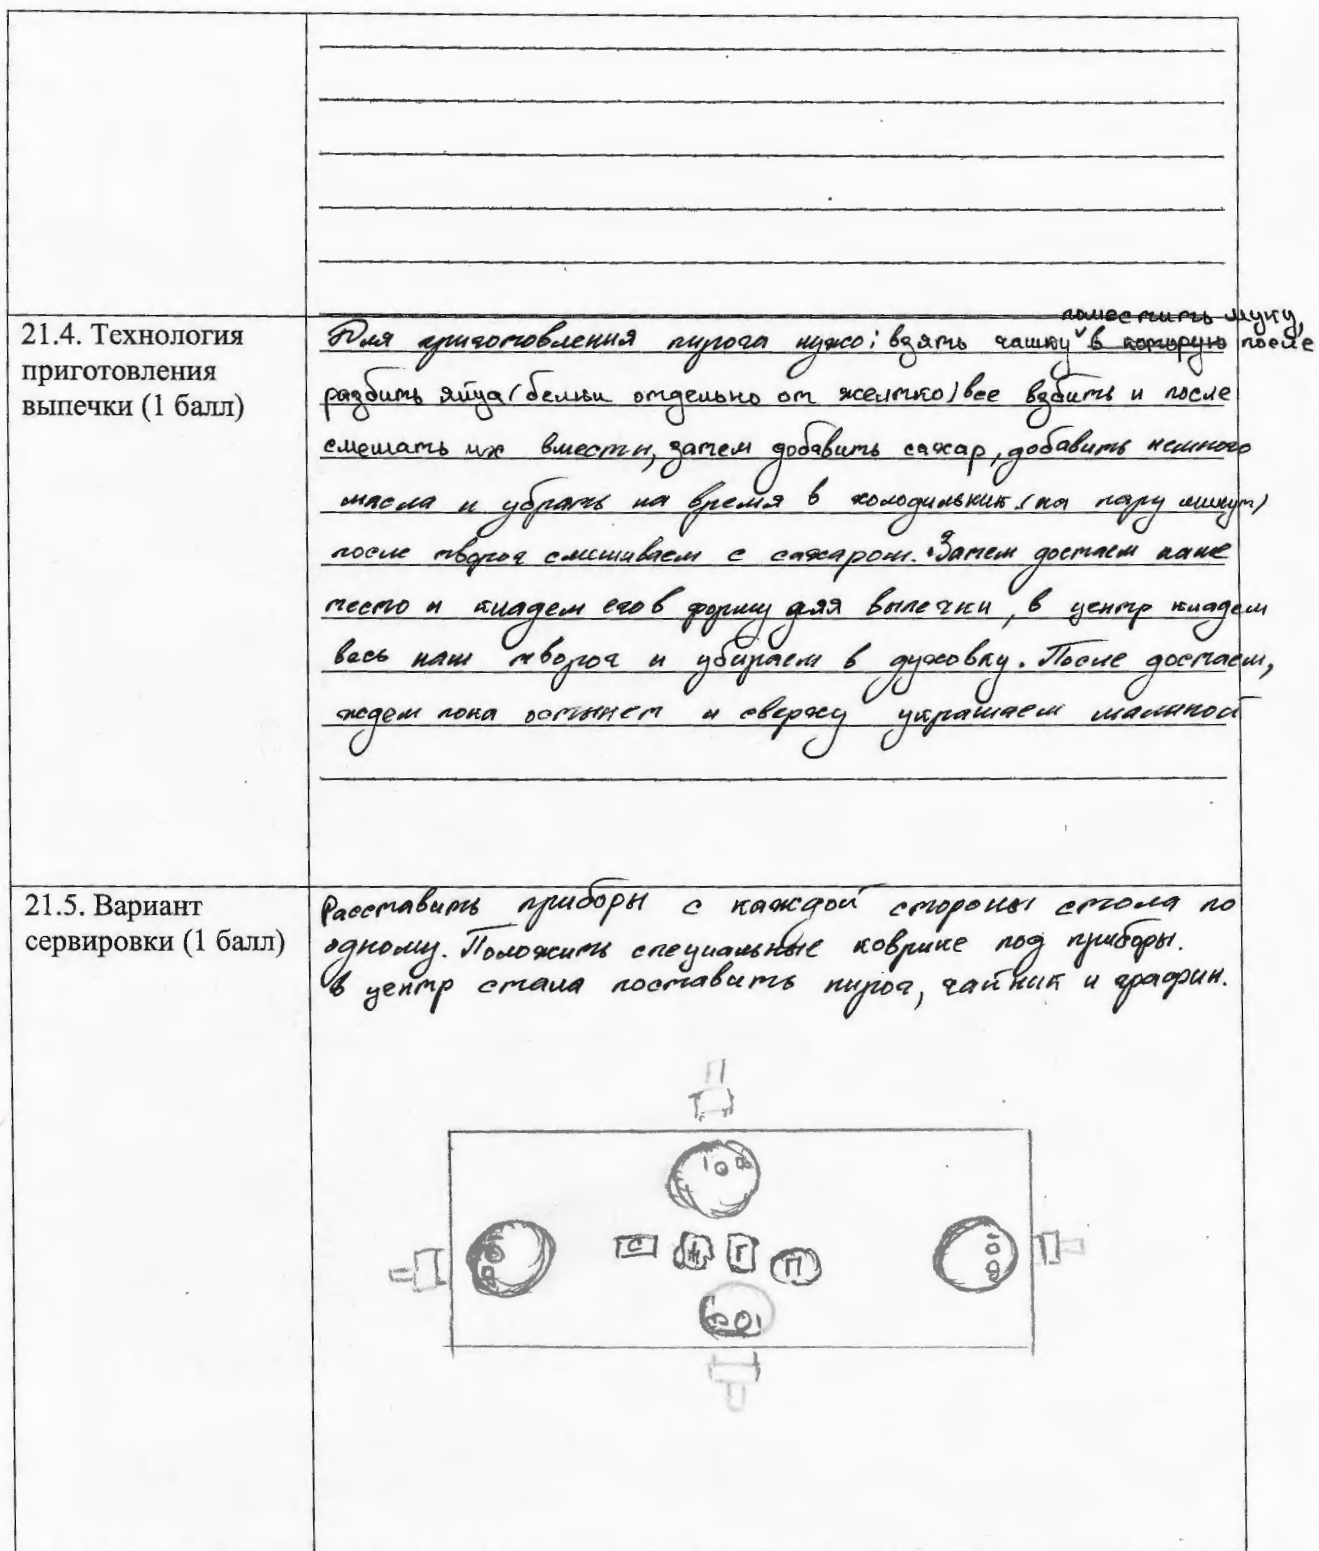 21.4. Технология
приготовления
выпечки (1 балл)
поместить муку,
Для приготовления пирога нужо: взять чашку в которую после
разбить яйца (белки отдельно от желтко) все взбить и после
смешать их вместн, затем добавить сахар, добавить немного
масла и убрать на время в холодильник (на пару минут)
после творог смешиваем с сахаром. Затем достаем наше
тесто и кладем его в форму для выпечки, в центр кладем
весь наш творог и убираем в духовку. После достаем,
ждем пока остынет и сверху украшаем малиной
21.5. Вариант
сервировки (1 балл)
Расставить приборы с каждой стороны стола по
одному. Положить специальные коврике под приборы.
в центр стала поставить пирог, чайник и графин.
С Ж Г П